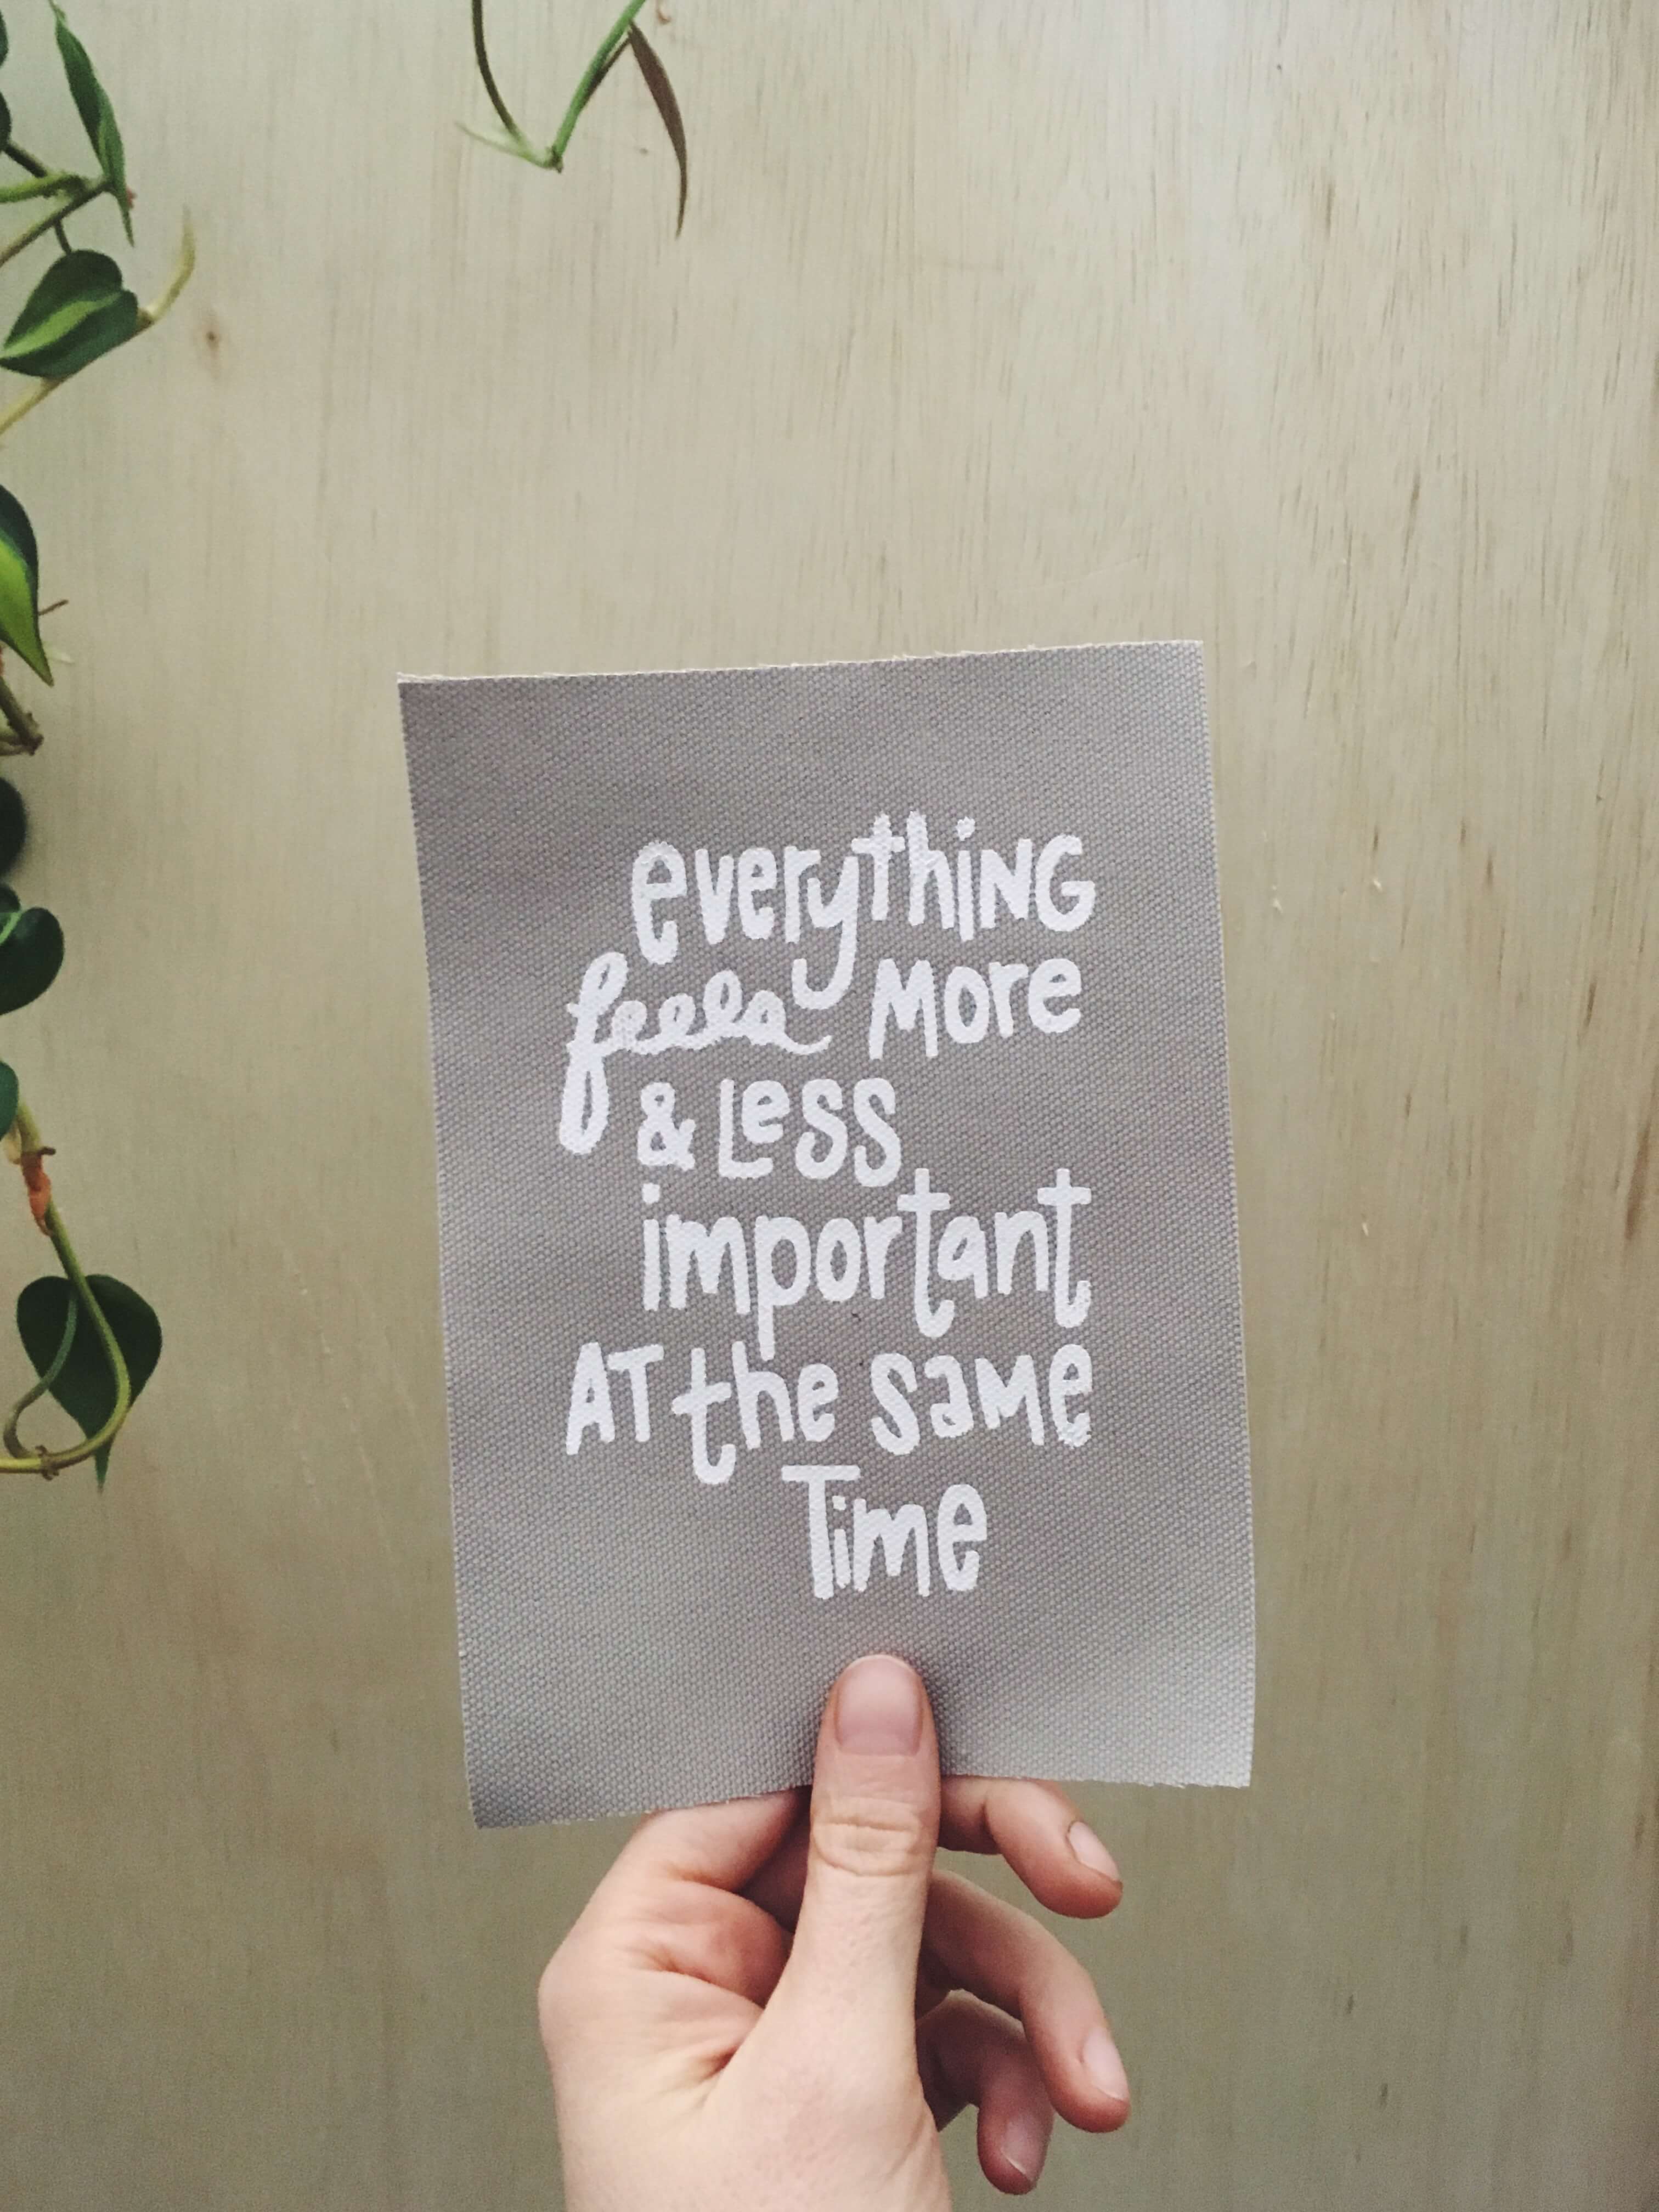 everythiNG
feels More
& Less
important
AT the saMe
Time